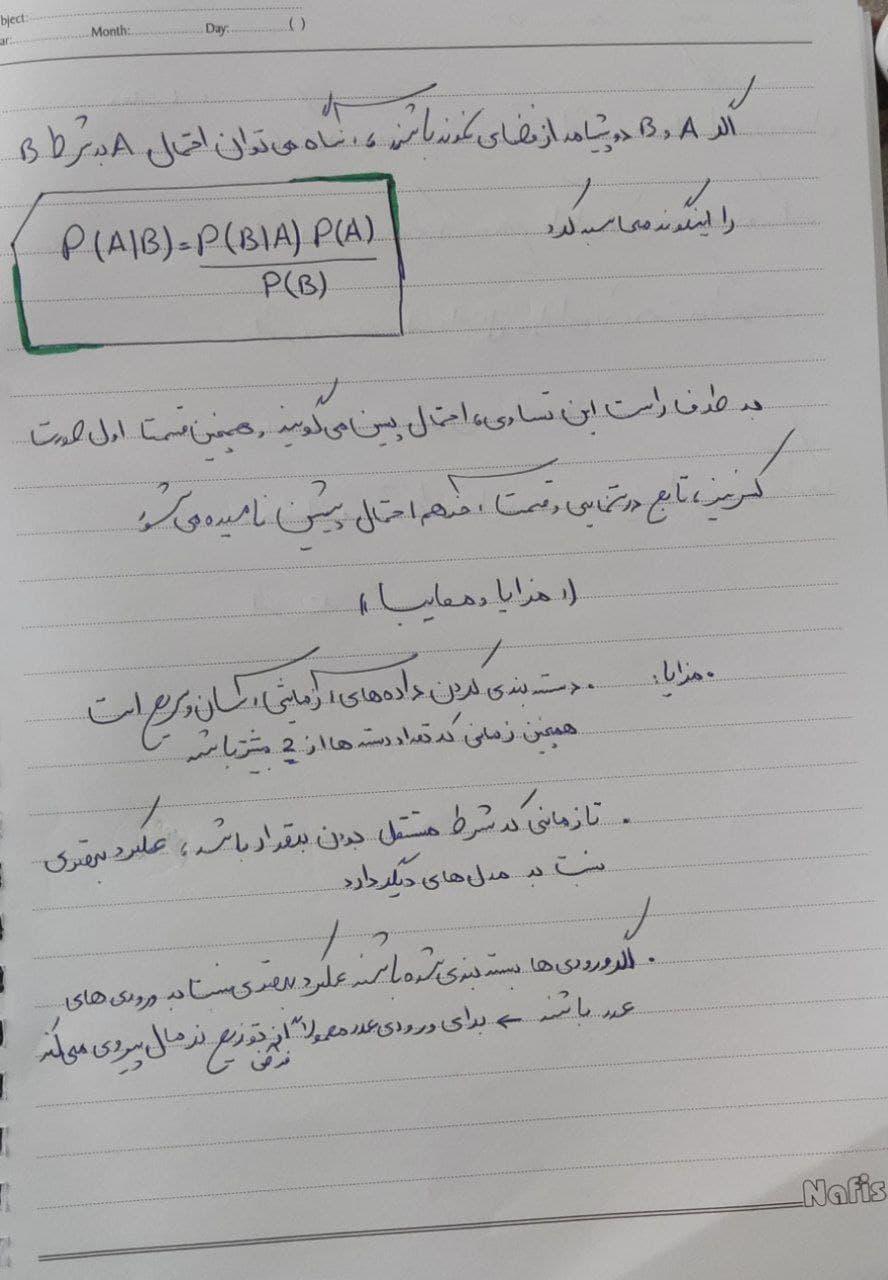 bject:
ar: Month: Day: ( )
اگر A و B دو پیشامد از فضای نمونه باشند، آنگاه می توان احتمال A به شرط B
را اینگونه محاسبه کرد
P(A|B) = P(B|A) P(A) / P(B)
به طرف راست این تساوی، احتمال پسین می گویند و همچنین قسمت اول صورت
کسر نیز، تابع درستنمایی و قسمت آخر هم احتمال پیشین نامیده می شود
(( مزایا و معایب ))
. مزایا: . دسته بندی کردن داده های آزمایشی، آسان و سریع است
همچنین زمانی که تعداد دسته ها از 2 بیشتر باشد
. تا زمانی که شرط مستقل بودن برقرار باشد، عملکرد بهتری
نسبت به مدل های دیگر دارد
. اگر ورودی ها دسته بندی شده باشند عملکرد بهتری نسبت به ورودی های
عدد باشند ← برای ورودی عدد معمولا از توزیع نرمال پیروی می کند
فرض
Nafis